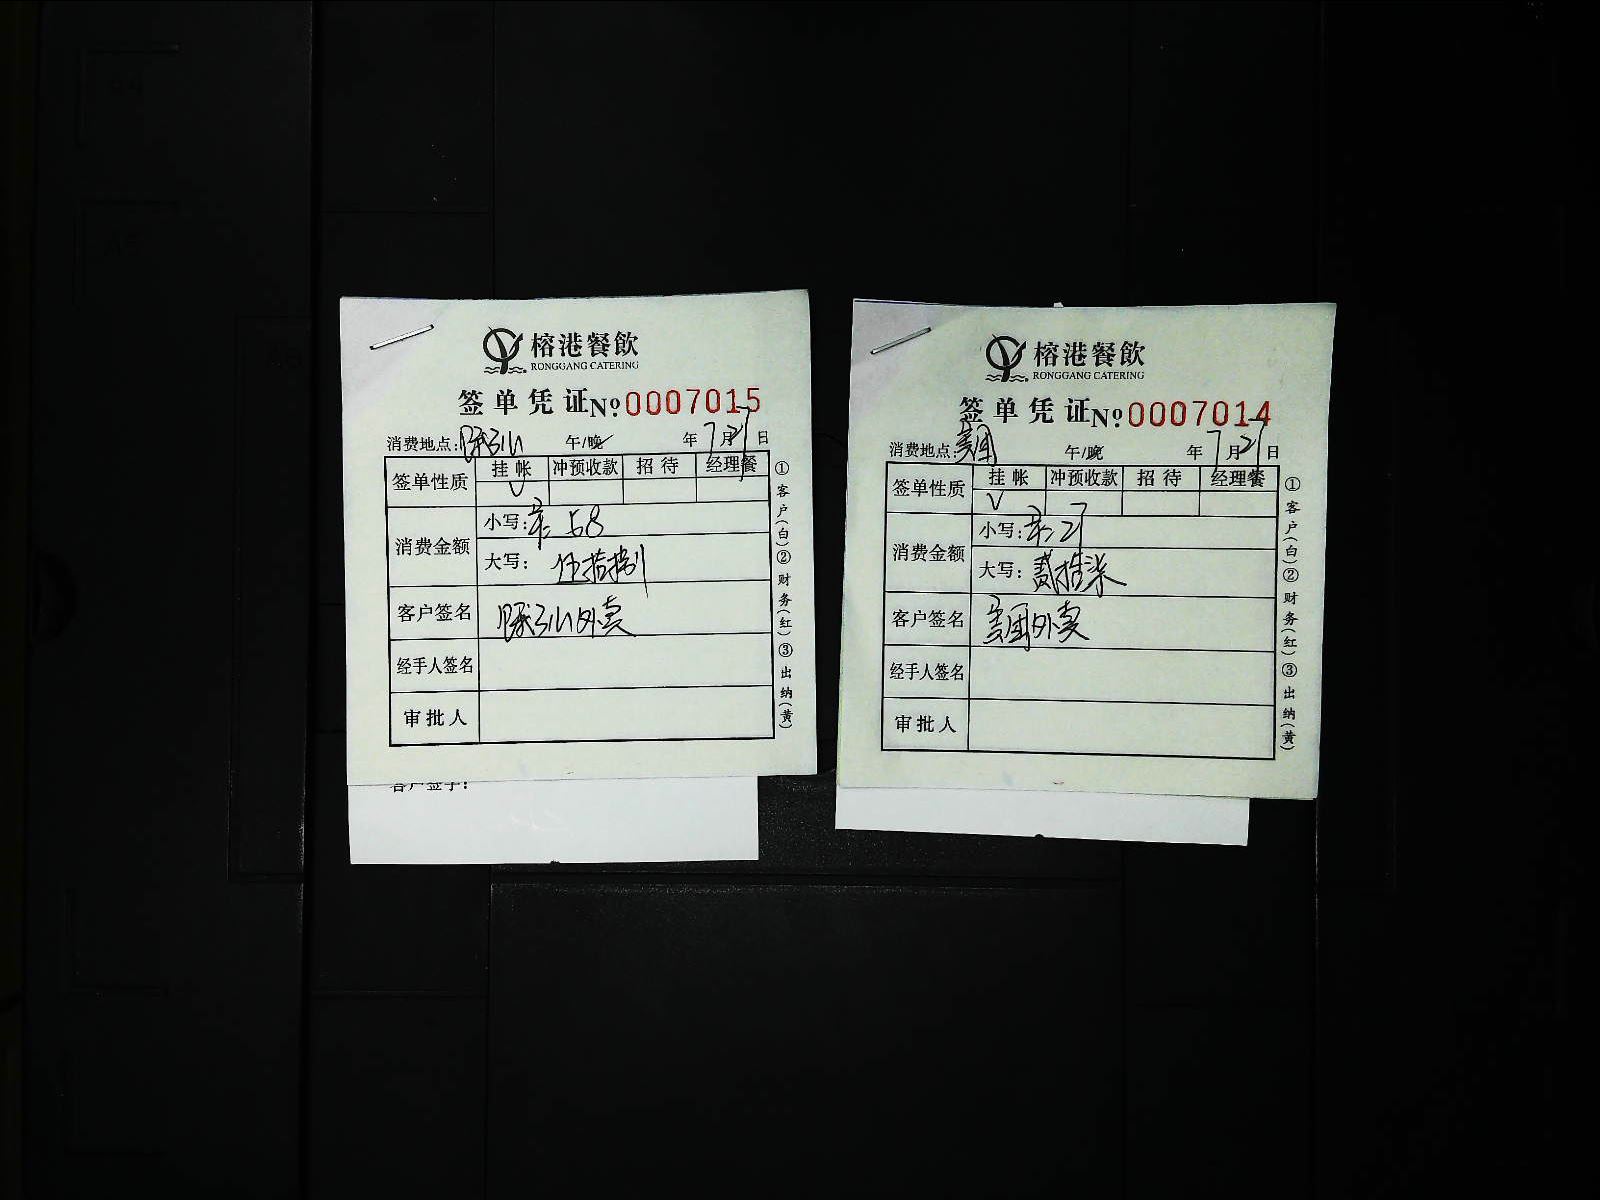 榕港餐飲
RONGGANG CATERING
签单凭证 No 0007015
消费地点: 午/晚 年 7月27日
签单性质 挂帐 冲预收款 招待 经理餐
V
消费金额 小写: 58
大写: 伍拾捌
客户签名 外卖
经手人签名
审批人
①客户(白)②财务(红)③出纳(黄)
客户签字:
榕港餐飲
RONGGANG CATERING
签单凭证 No 0007014
消费地点: 美团 午/晚 年 7月27日
签单性质 挂帐 冲预收款 招待 经理餐
V
消费金额 小写: 27
大写: 贰拾柒
客户签名 美团外卖
经手人签名
审批人
①客户(白)②财务(红)③出纳(黄)